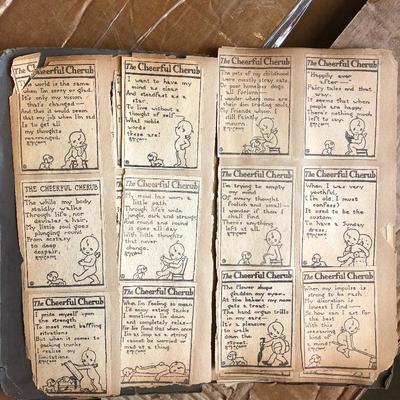 The Cheerful Cherub
The world is the same
when I'm sorry or glad.
It's only my vision
that's changed —
And thus it would seem
that my job when I'm sad
Is to get all
my thoughts
rearranged.
The Cheerful Cherub
I want to have my
mind as clear
And steadfast as a
star.
To live without a
thought of self —
What noble
words
these are!
THE CHEERFUL CHERUB
The while my body
staidly walks
Through life, nor
deviates a hair,
My little soul goes
plunging round
From ecstasy
to deep
despair.
The Cheerful Cherub
My mind has worn a
little path
Through life's wide
jungle, dark and strange
And round and round
it goes all day
With little thoughts
that never
change.
The Cheerful Cherub
I pride myself upon
the
To meet most baffling
situations
But when it comes to
packing trunks
I realize my
limitations.
The Cheerful Cherub
When I'm feeling so mean
I enjoy eating tacks
I sometimes lie down
and completely relax —
For I've found that when once
I'm as limp as a string
I cannot be worried or
mad at a thing.
The Cheerful Cherub
The pets of my childhood
were mostly stray cats,
Or poor homeless dogs
all forlorn —
I wonder where now are
their dim trailing souls
My friends whom I
still faintly
mourn.
The Cheerful Cherub
"Happily ever
after" —
Fairy tales end that
way.
It seems that when
people are happy
There's nothing much
left to say.
The Cheerful Cherub
I'm trying to empty
my mind
Of every thought
foolish and small —
I wonder if then I
shall find
There's anything
left at all.
The Cheerful Cherub
When I was very
youthful,
(I'm old, I must
confess)
It used to be the
custom
To have a Sunday
dress.
The Cheerful Cherub
The flower shops
gladden my eyes —
At the bakery my nose
gets a treat.
The hand organ trills
in my ears —
It's a pleasure
to walk
down the
street.
The Cheerful Cherub
When my impulse is
strong to be rash
My discretion is
lowest I find —
So how can I act for
the best
With this
seesawing
kind of
a mind?